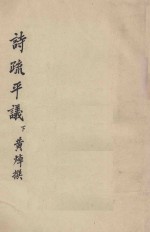 詩疏平議下黃焯撰